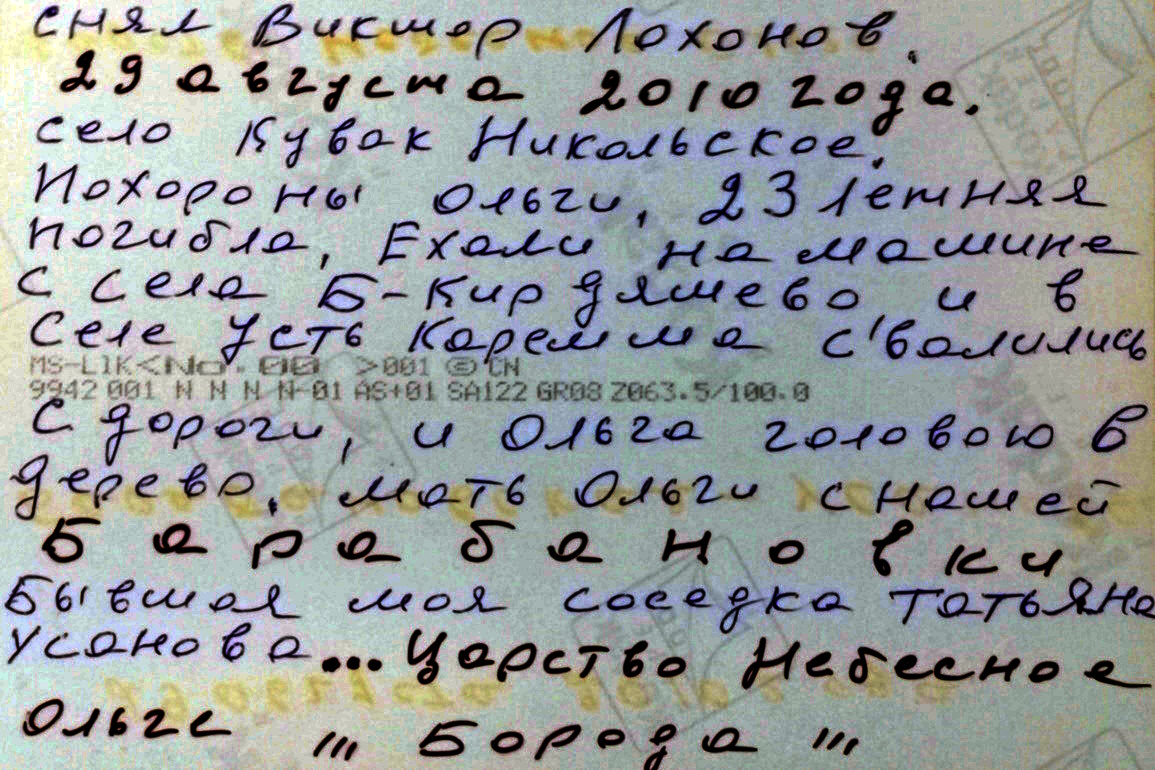 снял Виктор Лохонов.
29 августа 2010 года.
село Кувак Никольское.
Похороны Ольги, 23 летняя
погибла, Ехали на машине
с села Б-Кирдяшево и в
селе Усть Каремша с'валились
MS-L1K<No.00 >001 © CN
9942 001 N N N N-01 AS+01 SA122 GR08 Z063.5/100.0
с дороги, и Ольга головою в
дерево. мать Ольги с нашей
Барабановки
Бывшая моя соседка Татьяна
Усанова... Царство Небесное
Ольге ,,, Борода ,,,